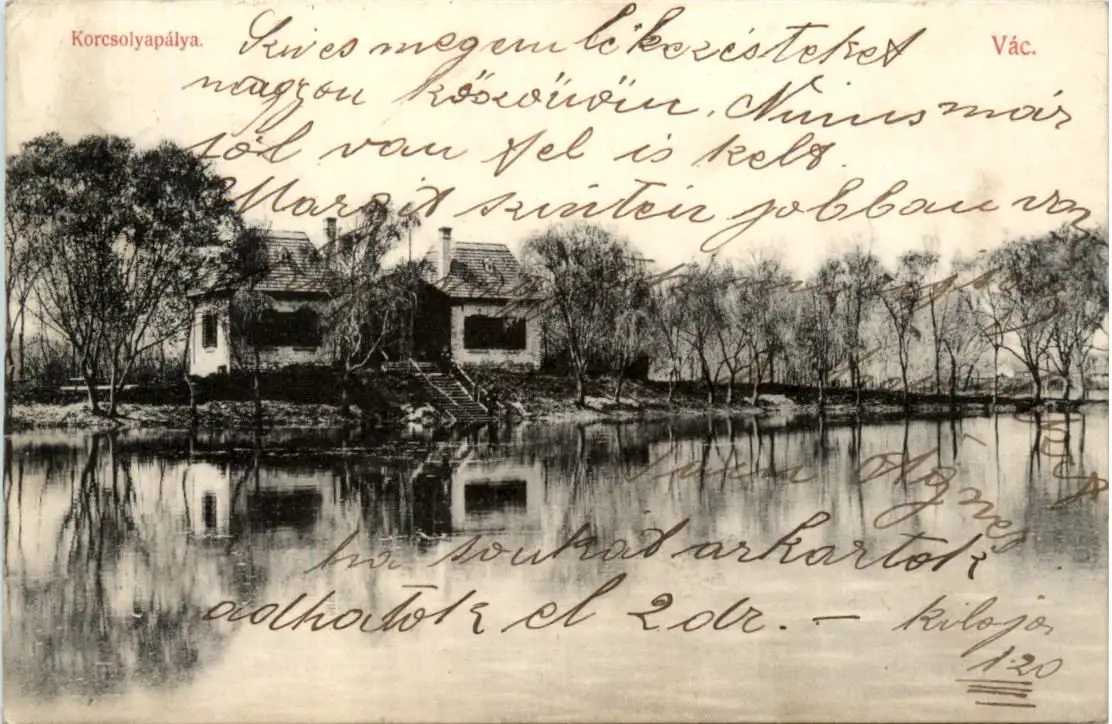 Korcsolyapálya.
Vác.
Szives megem lékezésteket
nagyon köszönöm. Ninus már
jól van fel is kelt.
Margit szintén jobban van
Ágnes
ha sonkát arkartok
adhatok el 2 dr. — kiloja
1·20